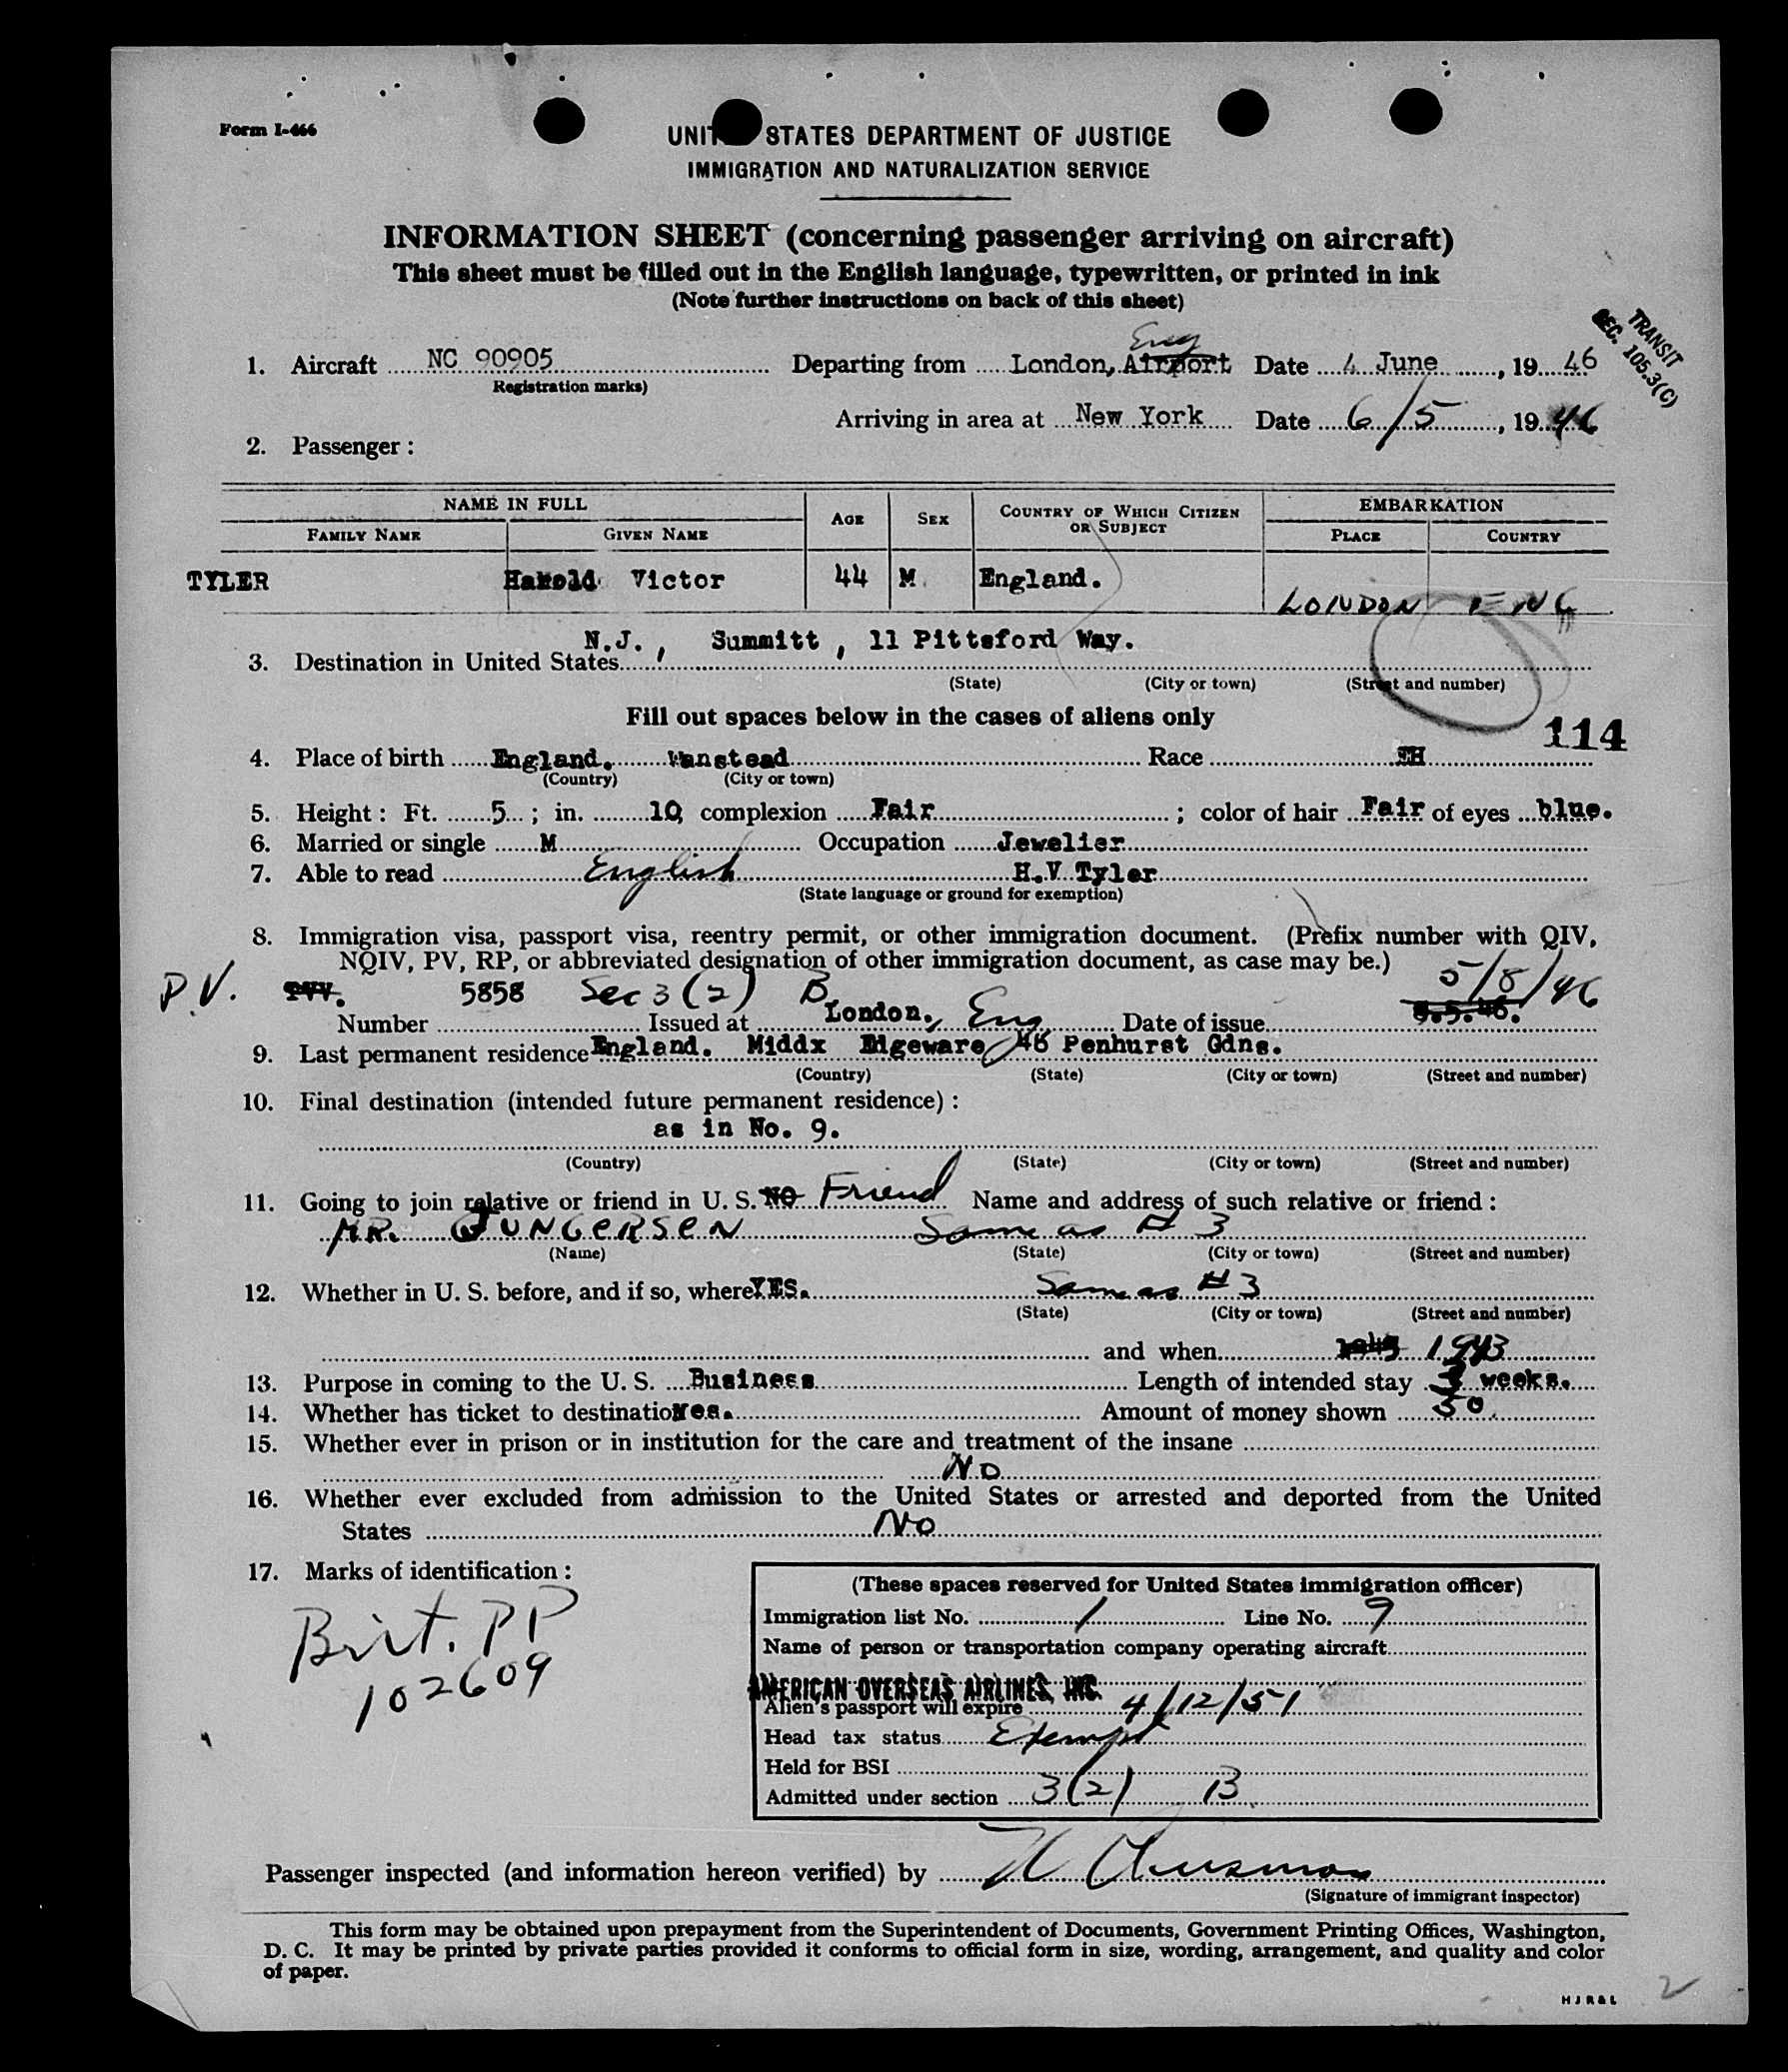 Form I-466
UNITED STATES DEPARTMENT OF JUSTICE
IMMIGRATION AND NATURALIZATION SERVICE
INFORMATION SHEET (concerning passenger arriving on aircraft)
This sheet must be filled out in the English language, typewritten, or printed in ink
(Note further instructions on back of this sheet)
TRANSIT
SEC. 105.3(C)
Eng
1. Aircraft NC 90905 Departing from London, Airport Date 4 June, 1946
(Registration marks)
Arriving in area at New York Date 6/5, 1946
2. Passenger:
NAME IN FULL AGE SEX COUNTRY OF WHICH CITIZEN OR SUBJECT EMBARKATION
FAMILY NAME GIVEN NAME PLACE COUNTRY
TYLER Harold Victor 44 M England. LONDON ENG
N.J., Summitt, 11 Pittsford Way.
3. Destination in United States
(State) (City or town) (Street and number)
Fill out spaces below in the cases of aliens only
114
4. Place of birth England. Wanstead Race EH
(Country) (City or town)
5. Height: Ft. 5; in. 10, complexion Fair; color of hair Fair of eyes blue.
6. Married or single M Occupation Jewelier
7. Able to read English H.V Tyler
(State language or ground for exemption)
8. Immigration visa, passport visa, reentry permit, or other immigration document. (Prefix number with QIV,
NQIV, PV, RP, or abbreviated designation of other immigration document, as case may be.)
P.V. 5858 Sec 3(2) B 5/8/46
Number Issued at London, Eng Date of issue 8.5.46.
9. Last permanent residence England. Middx Edgeware 46 Penhurst Gdns.
(Country) (State) (City or town) (Street and number)
10. Final destination (intended future permanent residence):
as in No. 9.
(Country) (State) (City or town) (Street and number)
11. Going to join relative or friend in U. S. NO Friend Name and address of such relative or friend:
MR. JUNGERSEN Same as # 3
(Name) (State) (City or town) (Street and number)
12. Whether in U. S. before, and if so, where YES. Same as # 3
(State) (City or town) (Street and number)
and when 1943
13. Purpose in coming to the U. S. Business Length of intended stay weeks.
14. Whether has ticket to destination Yes. Amount of money shown 50
15. Whether ever in prison or in institution for the care and treatment of the insane
NO
16. Whether ever excluded from admission to the United States or arrested and deported from the United
States NO
17. Marks of identification:
Brit. PP
102609
(These spaces reserved for United States immigration officer)
Immigration list No. 1 Line No. 9
Name of person or transportation company operating aircraft
AMERICAN OVERSEAS AIRLINES, INC.
Alien's passport will expire 4/12/51
Head tax status Exempt
Held for BSI
Admitted under section 3(2) B
Passenger inspected (and information hereon verified) by
(Signature of immigrant inspector)
This form may be obtained upon prepayment from the Superintendent of Documents, Government Printing Offices, Washington,
D. C. It may be printed by private parties provided it conforms to official form in size, wording, arrangement, and quality and color
of paper.
H J R & L
2